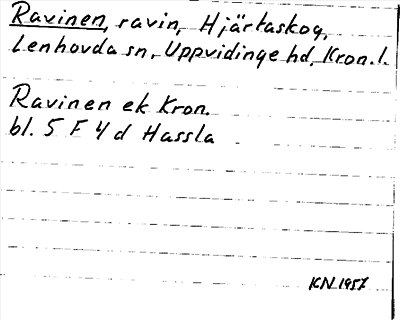 Ravinen, ravin, Hjärtaskog,
Lenhovda sn, Uppvidinge hd, Kron. l.
Ravinen ek Kron.
bl. 5 F 4 d Hassla
KN 1957